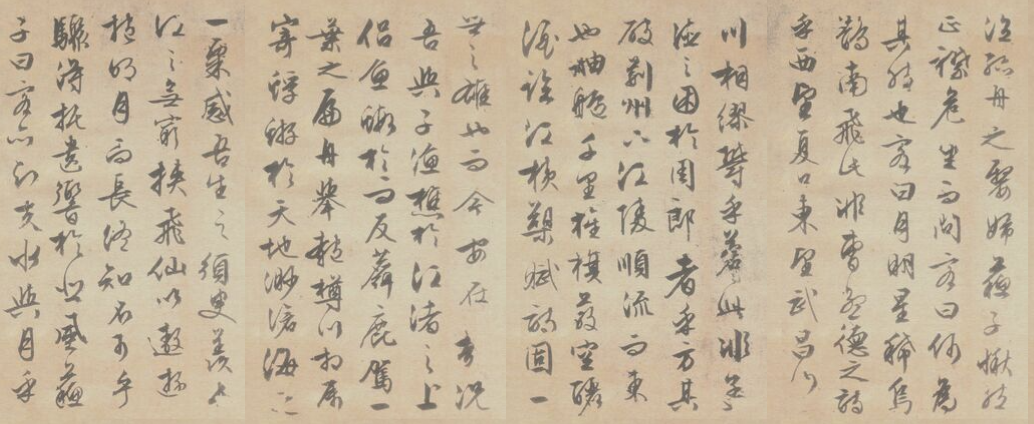 泣孤舟之嫠婦蘇子愀然
正襟危坐而問客曰何為
其然也客曰月明星稀烏
鵲南飛此非曹孟德之詩
乎西望夏口東望武昌山
川相繆鬱乎蒼蒼此非孟
德之困於周郎者乎方其
破荊州下江陵順流而東
也舳艫千里旌旗蔽空釃
酒臨江橫槊賦詩固一
世之雄也而今安在哉況
吾與子漁樵於江渚之上
侶魚蝦於而友麋鹿駕一
葉之扁舟舉匏樽以相屬
寄蜉蝣於天地渺滄海之
一粟感吾生之須臾羨長
江之無窮挾飛仙以遨遊
抱明月而長終知不可乎
驟得托遺響於悲風蘇
子曰客亦知夫水與月乎